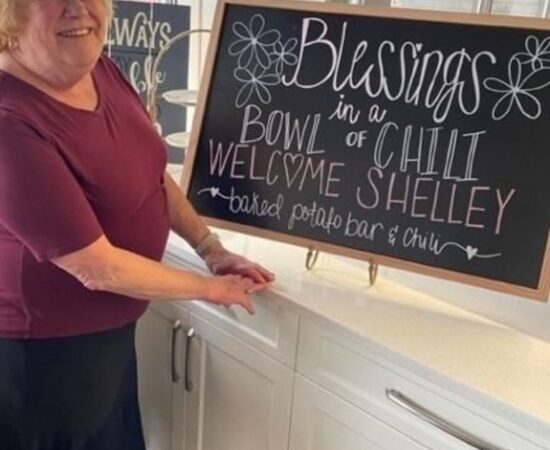 ALWAYS
Blessings
in a
BOWL OF CHILI
WELCOME SHELLEY
baked potato bar & chili